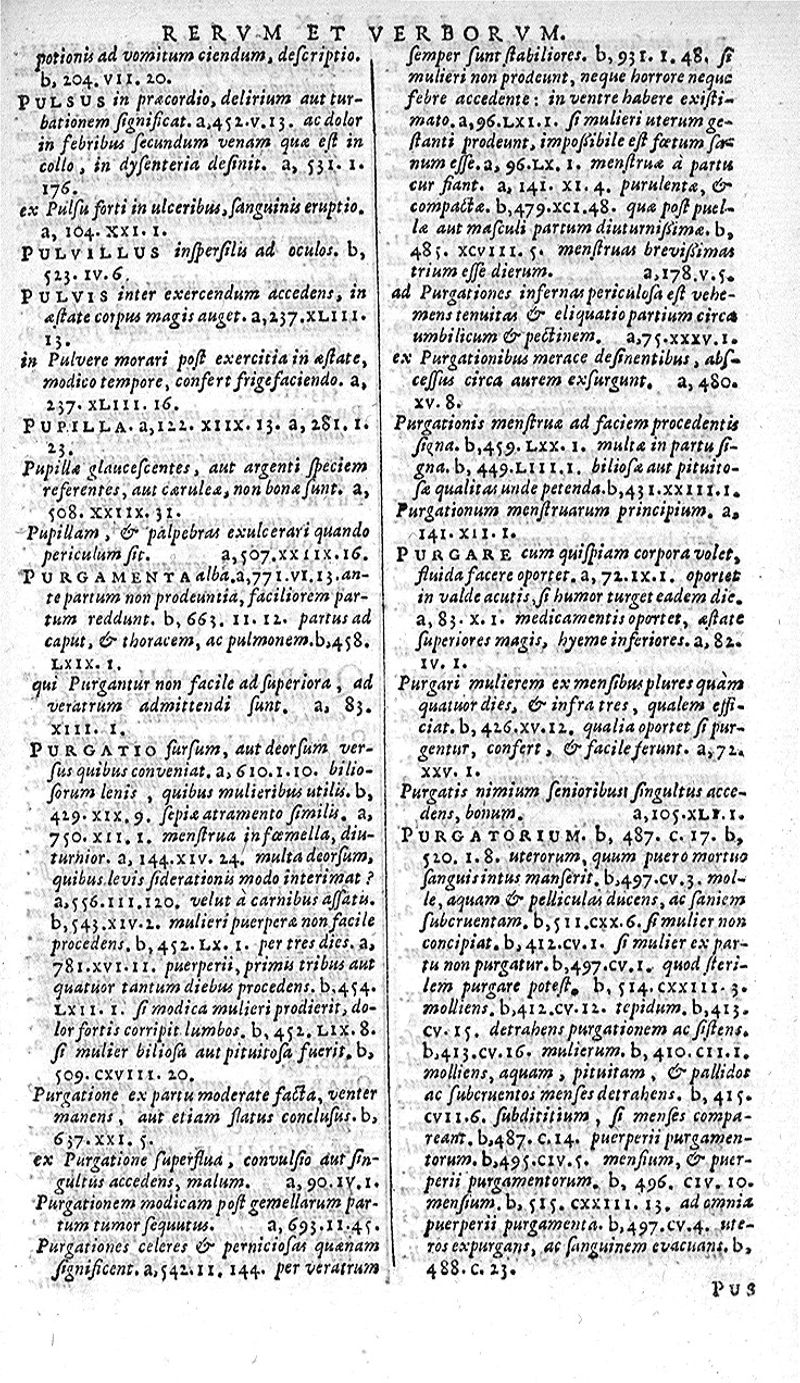 RERVM ET VERBORVM.
potionis ad vomitum ciendum, descriptio.
b, 204. VII. 20.
PULSUS in præcordio, delirium aut tur-
bationem significat. a, 452. V. 13. ac dolor
in febribus secundum venam quæ est in
collo, in dysenteria definit. a, 531. I.
176.
ex Pulsu forti in ulceribus, sanguinis eruptio.
a, 104. XXI. I.
PULVILLUS inspersilis ad oculos. b,
523. IV. 6.
PULVIS inter exercendum accedens, in
æstate corpus magis auget. a, 237. XLIII.
13.
in Pulvere morari post exercitia in æstate,
modico tempore, confert frigefaciendo. a,
237. XLIII. 16.
PUPILLA. a, 122. XIIX. 13. a, 281. I.
23.
Pupillæ glaucescentes, aut argenti speciem
referentes, aut cæruleæ, non bonæ sunt. a,
508. XXIIX. 31.
Pupillam, & palpebras exulcerari quando
periculum sit. a, 507. XXIIX. 16.
PURGAMENTA alba. a, 771. VI. 13. an-
te partum non prodeuntia, faciliorem par-
tum reddunt. b, 663. II. 12. partus ad
caput, & thoracem, ac pulmonem. b, 458.
LXIX. I.
qui Purgantur non facile ad superiora, ad
veratrum admittendi sunt. a, 83.
XIII. I.
PURGATIO sursum, aut deorsum ver-
sus quibus conveniat. a, 610. I. 10. bilio-
sorum lenis, quibus mulieribus utilis. b,
429. XIX. 9. sepiæ atramento similis. a,
750. XII. I. menstrua in fœmella, diu-
turnior. a, 144. XIV. 24. multa deorsum,
quibus levis siderationis modo interimat?
a, 556. III. 120. velut à carnibus assatis.
b, 543. XIV. 2. mulieri puerperæ non facile
procedens. b, 452. LX. I. per tres dies. a,
781. XVI. II. puerperii, primus tribus aut
quatuor tantum diebus procedens. b, 454.
LXII. I. si modica mulieri prodierit, do-
lor fortis corripit lumbos. b, 452. LIX. 8.
si mulier biliosa aut pituitosa fuerit. b,
509. CXVIII. 20.
Purgatione ex partu moderate facta, venter
manens, aut etiam flatus conclusus. b,
637. XXI. 5.
ex Purgatione superflua, convulsio aut sin-
gultus accedens, malum. a, 90. IV. I.
Purgationem modicam post gemellarum par-
tum tumor sequutus. a, 693. II. 45.
Purgationes celeres & perniciosas quænam
significent. a, 542. II. 144. per veratrum
semper sunt stabiliores. b, 931. I. 48. si
mulieri non prodeunt, neque horrore neque
febre accedente: in ventre habere existi-
mato. a, 96. LXI. I. si mulieri uterum ge-
stanti prodeunt, impossibile est fœtum sa-
num esse. a, 96. LX. I. menstruæ à partu
cur fiant. a, 141. XI. 4. purulentæ, &
compactæ. b, 479. XCI. 48. quæ post puel-
læ aut masculi partum diuturnissimæ. b,
485. XCVIII. 5. menstruas brevissimas
trium esse dierum. a, 178. V. 5.
ad Purgationes infernas periculosa est vehe-
mens tenuitas & eliquatio partium circa
umbilicum & pectinem. a, 75. XXXV. I.
ex Purgationibus merace desinentibus, abs-
cessus circa aurem exsurgunt. a, 480.
XV. 8.
Purgationis menstruæ ad faciem procedentis
signa. b, 459. LXX. I. multæ in partu si-
gna. b, 449. LIII. I. biliosæ aut pituito-
sæ qualitas unde petenda. b, 431. XXIII. I.
Purgationum menstruarum principium. a,
141. XII. I.
PURGARE cum quispiam corpora volet,
fluida facere oportet. a, 72. IX. I. oportet
in valde acutis, si humor turget eadem die.
a, 83. X. I. medicamentis oportet, æstate
superiores magis, hyeme inferiores. a, 82.
IV. I.
Purgari mulierem ex mensibus plures quàm
quatuor dies, & infra tres, qualem effi-
ciat. b, 426. XV. 12. qualia oportet si pur-
gentur, confert, & facile ferunt. a, 72.
XXV. I.
Purgatis nimium senioribus singultus acce-
dens, bonum. a, 105. XLI. I.
PURGATORIUM. b, 487. C. 17. b,
520. I. 8. uterorum, quum puero mortuo
sanguis intus manserit. b, 497. CV. 3. mol-
le, aquam & pelliculas ducens, ac saniem
subcruentam. b, 511. CXX. 6. si mulier non
concipiat. b, 412. CV. I. si mulier ex par-
tu non purgatur. b, 497. CV. I. quod steri-
lem purgare potest. b, 514. CXXIII. 3.
molliens. b, 412. CV. 12. tepidum. b, 413.
CV. 15. detrahens purgationem ac sistens.
b, 413. CV. 16. mulierum. b, 410. CII. I.
molliens, aquam, pituitam, & pallidos
ac subcruentos menses detrahens. b, 415.
CVII. 6. subdititium, si menses compa-
reant. b, 487. C. 14. puerperii purgamen-
torum. b, 495. CIV. 5. mensium, & puer-
perii purgamentorum. b, 496. CIV. 10.
mensium. b, 515. CXXIII. 13. ad omnia
puerperii purgamenta. b, 497. CV. 4. ute-
ros expurgans, ac sanguinem evacuans. b,
488. C. 23.
PUS